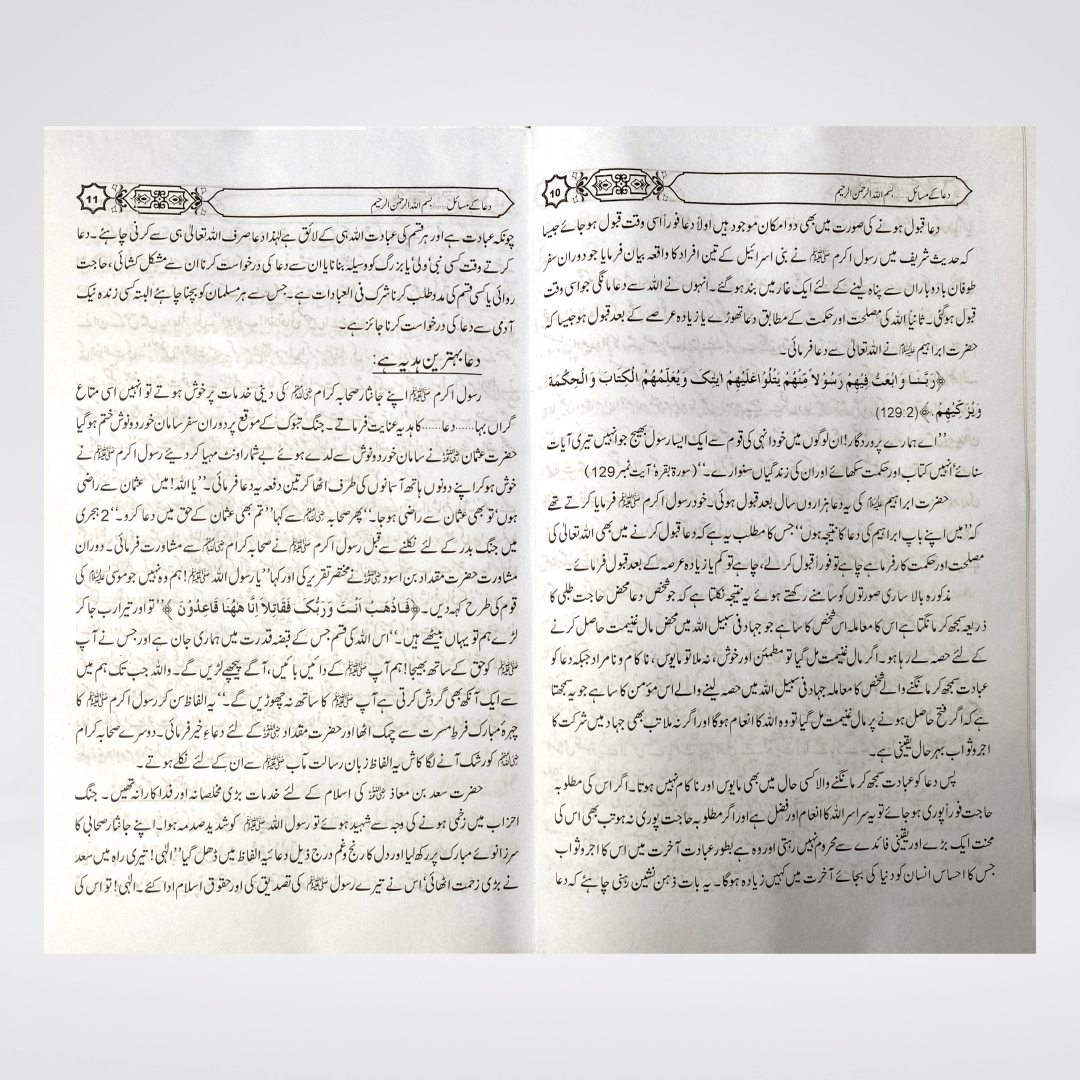 دعا کے مسائل ..... بسم اللہ الرحمٰن الرحیم
10
دعا قبول ہونے کی صورت میں بھی دو امکان موجود ہیں اولاً دعا فوراً اسی وقت قبول ہوجائے جیسا
کہ حدیث شریف میں رسول اکرم ﷺ نے بنی اسرائیل کے تین افراد کا واقعہ بیان فرمایا جو دوران سفر
طوفان بادوباراں سے پناہ لینے کے لئے ایک غار میں بند ہوگئے۔ انہوں نے اللہ سے دعا مانگی جو اسی وقت
قبول ہوگئی۔ ثانیاً اللہ کی مصلحت اور حکمت کے مطابق دعا تھوڑے یا زیادہ عرصے کے بعد قبول ہو جیسا کہ
حضرت ابراہیم علیہ السلام نے اللہ تعالیٰ سے دعا فرمائی۔
﴿رَبَّنَا وَابْعَثْ فِيْهِمْ رَسُوْلاً مِّنْهُمْ يَتْلُوْا عَلَيْهِمْ اٰيٰتِكَ وَيُعَلِّمُهُمُ الْكِتَابَ وَالْحِكْمَةَ
وَيُزَكِّيْهِمْ.﴾(129:2)
’’اے ہمارے پروردگار! ان لوگوں میں خود انہی کی قوم سے ایک ایسا رسول بھیج جو انہیں تیری آیات
سنائے‘ انہیں کتاب اور حکمت سکھائے اور ان کی زندگیاں سنوارے۔‘‘ (سورۃ بقرہ‘ آیت نمبر 129)
حضرت ابراہیم علیہ السلام کی یہ دعا ہزاروں سال بعد قبول ہوئی۔ خود رسول اکرم ﷺ فرمایا کرتے تھے
کہ ’’میں اپنے باپ ابراہیم کی دعا کا نتیجہ ہوں‘‘ جس کا مطلب یہ ہے کہ دعا قبول کرنے میں بھی اللہ تعالیٰ کی
مصلحت اور حکمت کارفرما ہے چاہے تو فوراً قبول کرلے، چاہے تو کم یا زیادہ عرصہ کے بعد قبول فرمائے۔
مذکورہ بالا ساری صورتوں کو سامنے رکھتے ہوئے یہ نتیجہ نکلتا ہے کہ جو شخص دعا محض حاجت طلبی کا
ذریعہ سمجھ کر مانگتا ہے اس کا معاملہ اس شخص کا سا ہے جو جہاد فی سبیل اللہ میں محض مال غنیمت حاصل کرنے
کے لئے حصہ لے رہا ہو۔ اگر مال غنیمت مل گیا تو مطمئن اور خوش، نہ ملا تو مایوس، ناکام و نامراد جبکہ دعا کو
عبادت سمجھ کر مانگنے والے شخص کا معاملہ جہاد فی سبیل اللہ میں حصہ لینے والے اس مؤمن کا سا ہے جو یہ سمجھتا
ہے کہ اگر فتح حاصل ہونے پر مال غنیمت مل گیا تو وہ اللہ کا انعام ہوگا اور اگر نہ ملا تب بھی جہاد میں شرکت کا
اجر و ثواب بہرحال یقینی ہے۔
پس دعا کو عبادت سمجھ کر مانگنے والا کسی حال میں بھی مایوس اور ناکام نہیں ہوتا۔ اگر اس کی مطلوبہ
حاجت فوراً پوری ہوجائے تو یہ سراسر اللہ کا انعام اور فضل ہے اور اگر مطلوبہ حاجت پوری نہ ہو تب بھی اس کی
محنت ایک بڑے اور یقینی فائدے سے محروم نہیں رہتی اور وہ ہے بطور عبادت آخرت میں اس کا اجر و ثواب
جس کا احساس انسان کو دنیا کی بجائے آخرت میں کہیں زیادہ ہوگا۔ یہ بات ذہن نشین رہنی چاہئے کہ دعا
دعا کے مسائل ..... بسم اللہ الرحمٰن الرحیم
11
چونکہ عبادت ہے اور ہر قسم کی عبادت اللہ ہی کے لائق ہے لہٰذا دعا صرف اللہ تعالیٰ ہی سے کرنی چاہئے۔ دعا
کرتے وقت کسی نبی‘ ولی‘ یا بزرگ کو وسیلہ بنانا یا ان سے دعا کی درخواست کرنا ان سے مشکل کشائی، حاجت
روائی یا کسی قسم کی مدد طلب کرنا شرک فی العبادات ہے۔ جس سے ہر مسلمان کو بچنا چاہئے البتہ کسی زندہ نیک
آدمی سے دعا کی درخواست کرنا جائز ہے۔
دعا بہترین ہدیہ ہے:
رسول اکرم ﷺ اپنے جانثار صحابہ کرام رضی اللہ عنہم کی دینی خدمات پر خوش ہوتے تو انہیں اسی متاع
گراں بہا ...... دعا ...... کا ہدیہ عنایت فرماتے۔ جنگ تبوک کے موقع پر دوران سفر سامان خوردونوش ختم ہوگیا
حضرت عثمان رضی اللہ عنہ نے سامان خوردونوش سے لدے ہوئے بے شمار اونٹ مہیا کردیئے رسول اکرم ﷺ نے
خوش ہوکر اپنے دونوں ہاتھ آسمانوں کی طرف اٹھا کر تین دفعہ یہ دعا فرمائی۔ ’’یا اللہ! میں عثمان سے راضی
ہوں‘ تو بھی عثمان سے راضی ہوجا۔‘‘ پھر صحابہ رضی اللہ عنہم سے کہا ’’تم بھی عثمان کے حق میں دعا کرو۔‘‘ 2 ہجری
میں جنگ بدر کے لئے نکلنے سے قبل رسول اکرم ﷺ نے صحابہ کرام رضی اللہ عنہم سے مشاورت فرمائی۔ دوران
مشاورت حضرت مقداد بن اسود رضی اللہ عنہ نے مختصر تقریر کی اور کہا ’’یا رسول اللہ ﷺ! ہم وہ نہیں جو موسیٰ علیہ السلام کی
قوم کی طرح کہہ دیں۔ ﴿فَاذْهَبْ اَنْتَ وَرَبُّكَ فَقَاتِلاَ اِنَّا هٰهُنَا قَاعِدُوْنَ﴾ ’’تو اور تیرا رب جا کر
لڑے ہم تو یہاں بیٹھے ہیں۔‘‘ اس اللہ کی قسم جس کے قبضہ قدرت میں ہماری جان ہے اور جس نے آپ
ﷺ کو حق کے ساتھ بھیجا! ہم آپ ﷺ کے دائیں بائیں، آگے پیچھے لڑیں گے۔ واللہ جب تک ہم میں
سے ایک آنکھ بھی گردش کرتی ہے آپ ﷺ کا ساتھ نہ چھوڑیں گے۔‘‘ یہ الفاظ سن کر رسول اکرم ﷺ کا
چہرہ مبارک فرط مسرت سے چمک اٹھا اور حضرت مقداد رضی اللہ عنہ کے لئے دعاء خیر فرمائی۔ دوسرے صحابہ کرام
رضی اللہ عنہم کو رشک آنے لگا کاش یہ الفاظ زبان رسالت مآب ﷺ سے ان کے لئے نکلے ہوتے۔
حضرت سعد بن معاذ رضی اللہ عنہ کی اسلام کے لئے خدمات بڑی مخلصانہ اور فداکارانہ تھیں۔ جنگ
احزاب میں زخمی ہونے کی وجہ سے شہید ہوئے تو رسول اللہ ﷺ کو شدید صدمہ ہوا۔ اپنے جانثار صحابی کا
سر زانوئے مبارک پر رکھ لیا اور دل کا رنج و غم درج ذیل دعائیہ الفاظ میں ڈھل گیا ’’الٰہی! تیری راہ میں سعد
نے بڑی زحمت اٹھائی‘ اس نے تیرے رسول ﷺ کی تصدیق کی اور حقوق اسلام ادا کئے۔ الٰہی! تو اس کی